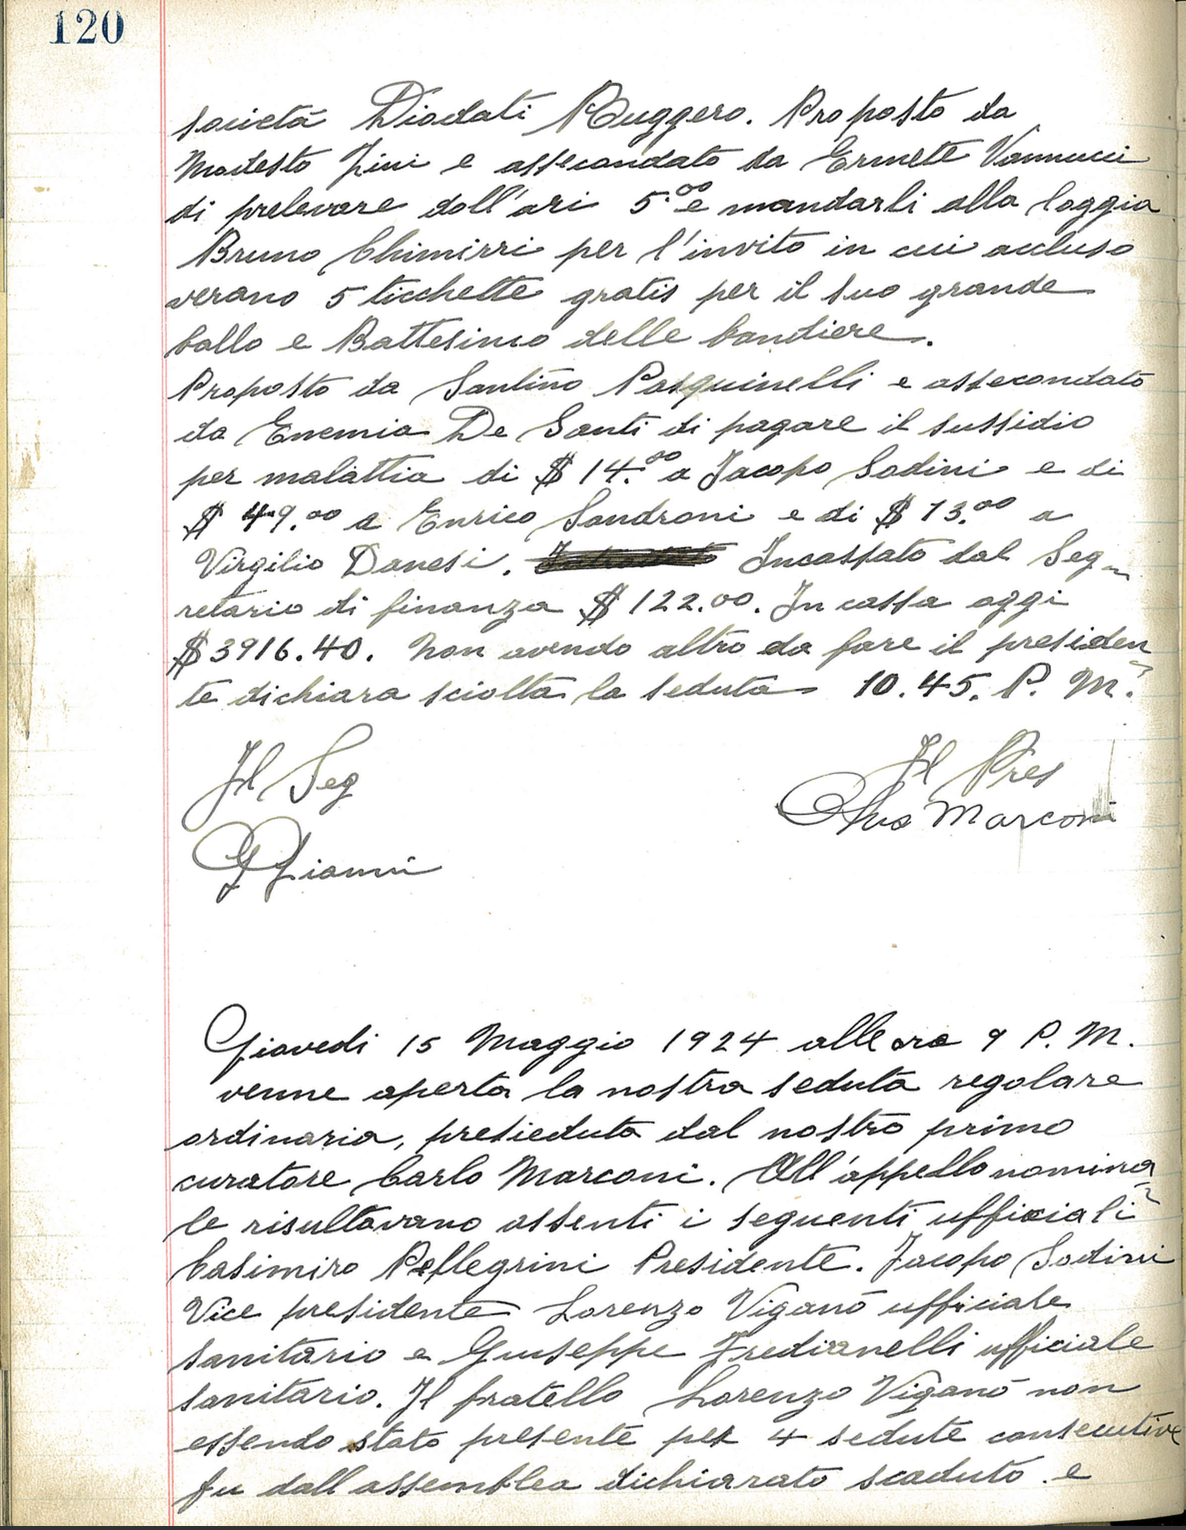 120
società Diodati Ruggero. Proposto da
Modesto Zini e assecondato da Ermete Vannucci
di prelevare dall'ari 5.00 e mandarli alla loggia
Bruno Chimirri per l'invito in cui accluso
verano 5 ticchette gratis per il suo grande
ballo e Battesimo delle bandiere.
Proposto da Santino Pasquinelli e assecondato
da Enemia De Santi di pagare il sussidio
per malattia di $ 14.00 a Jacopo Sodini e di
$ 9.00 a Enrico Sandroni e di $ 13.00 a
Virgilio Danesi. Incassato dal Seg-
retario di finanza $ 122.00. In cassa oggi
$3916.40. Non avendo altro da fare il presiden
te dichiara sciolta la seduta 10.45. P. M.
Il Seg
Il Pres
Marconi
G Gianni
Giovedi 15 Maggio 1924 alle ore 9 P. M.
venne aperta la nostra seduta regolare
ordinaria, presieduta dal nostro primo
curatore Carlo Marconi. All'appello nomina
le risultavano assenti i seguenti ufficiali
Casimiro Pellegrini Presidente. Jacopo Sodini
Vice presidente Lorenzo Viganò ufficiale
sanitario e Giuseppe Fredianelli ufficiale
sanitario. Il fratello Lorenzo Viganò non
essendo stato presente per 4 sedute consecutive
fu dall assemblea dichiarato scaduto e